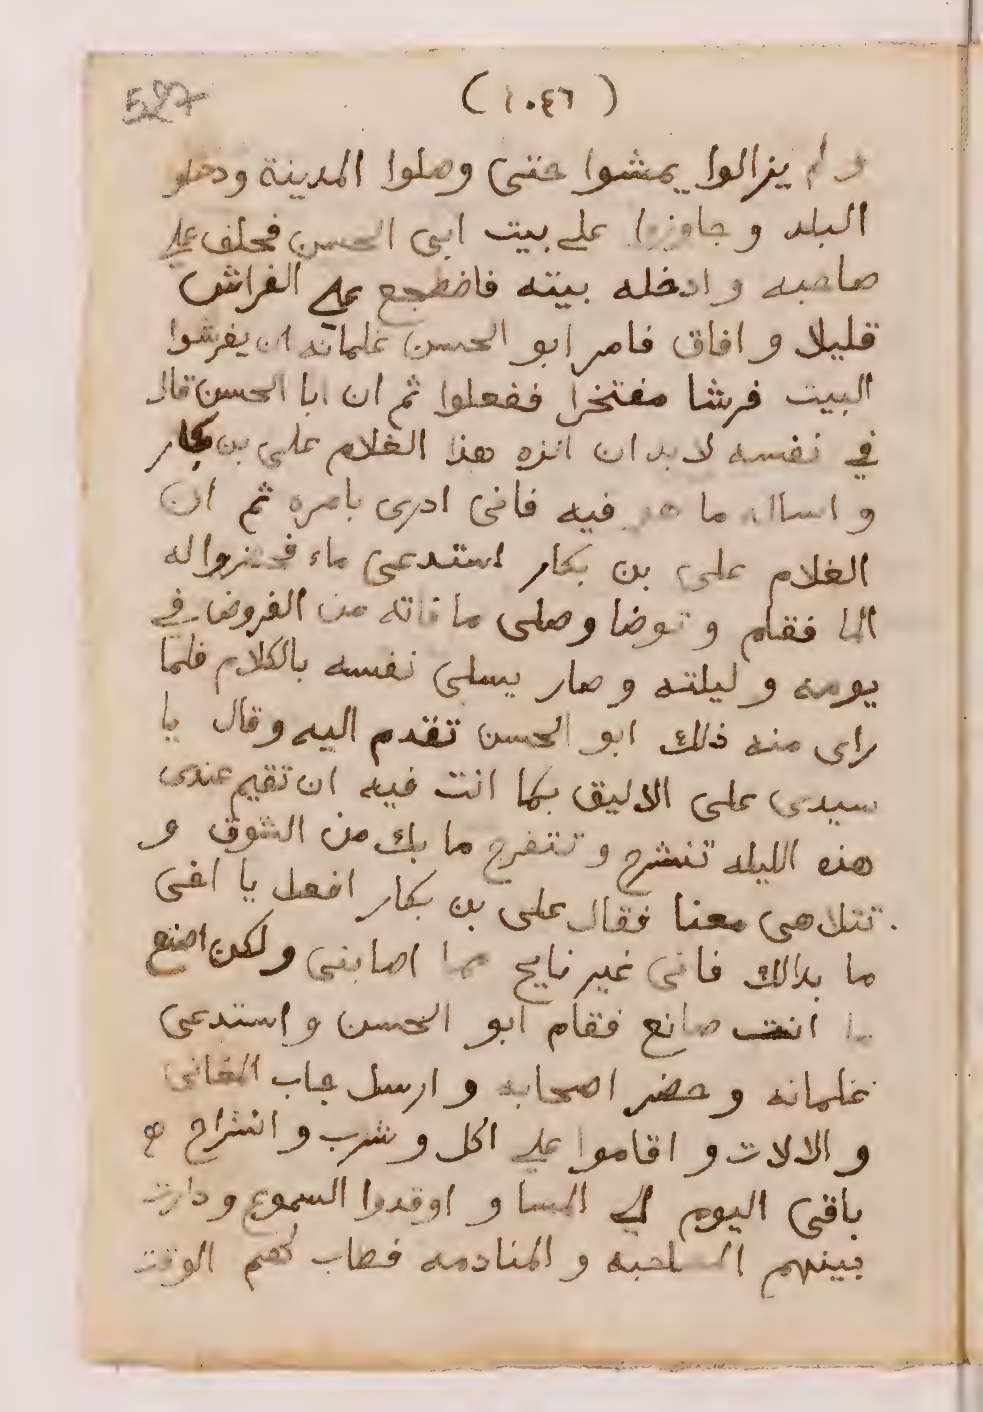 527
(١٠٤٦)
ولم يزالوا يمشوا حتى وصلوا المدينة ودخلو
البلد و جاوزوا على بيت ابى الحسن فحلف على
صاحبه و ادخله بيته فاضطجع على الفراش
قليلا و افاق فامر ابو الحسن غلمانه ان يفرشوا
البيت فرشا مفتخرا ففعلوا ثم ان ابا الحسن قال
في نفسه لا بد ان انزه هذا الغلام على بن بكار
و اساله ما هو فيه فانى ادرى بامره ثم ان
الغلام على بن بكار استدعى ماء فحضروا له
الما فقام و توضا و صلى ما فاته من الفروض في
يومه و ليلته و صار يسلى نفسه بالكلام فلما
راى منه ذلك ابو الحسن تقدم اليه و قال يا
سيدى على الاليق بكما انت فيه ان تقيم عندى
هذه الليله تنشرح و تتفرج ما بك من الشوق و
تتلاهى معنا فقال على بن بكار افعل يا اخى
ما بدالك فانى غير نايح مما اصابنى و لكن اصنع
ما انت صانع فقام ابو الحسن و استدعى
غلمانه و حضر اصحابه و ارسل جاب المغانى
و الالات و اقاموا على اكل و شرب و انشراح
باقى اليوم الي المسا و اوقدوا السموع و دارت
بينهم و المنادمه فطاب لهم الوقت